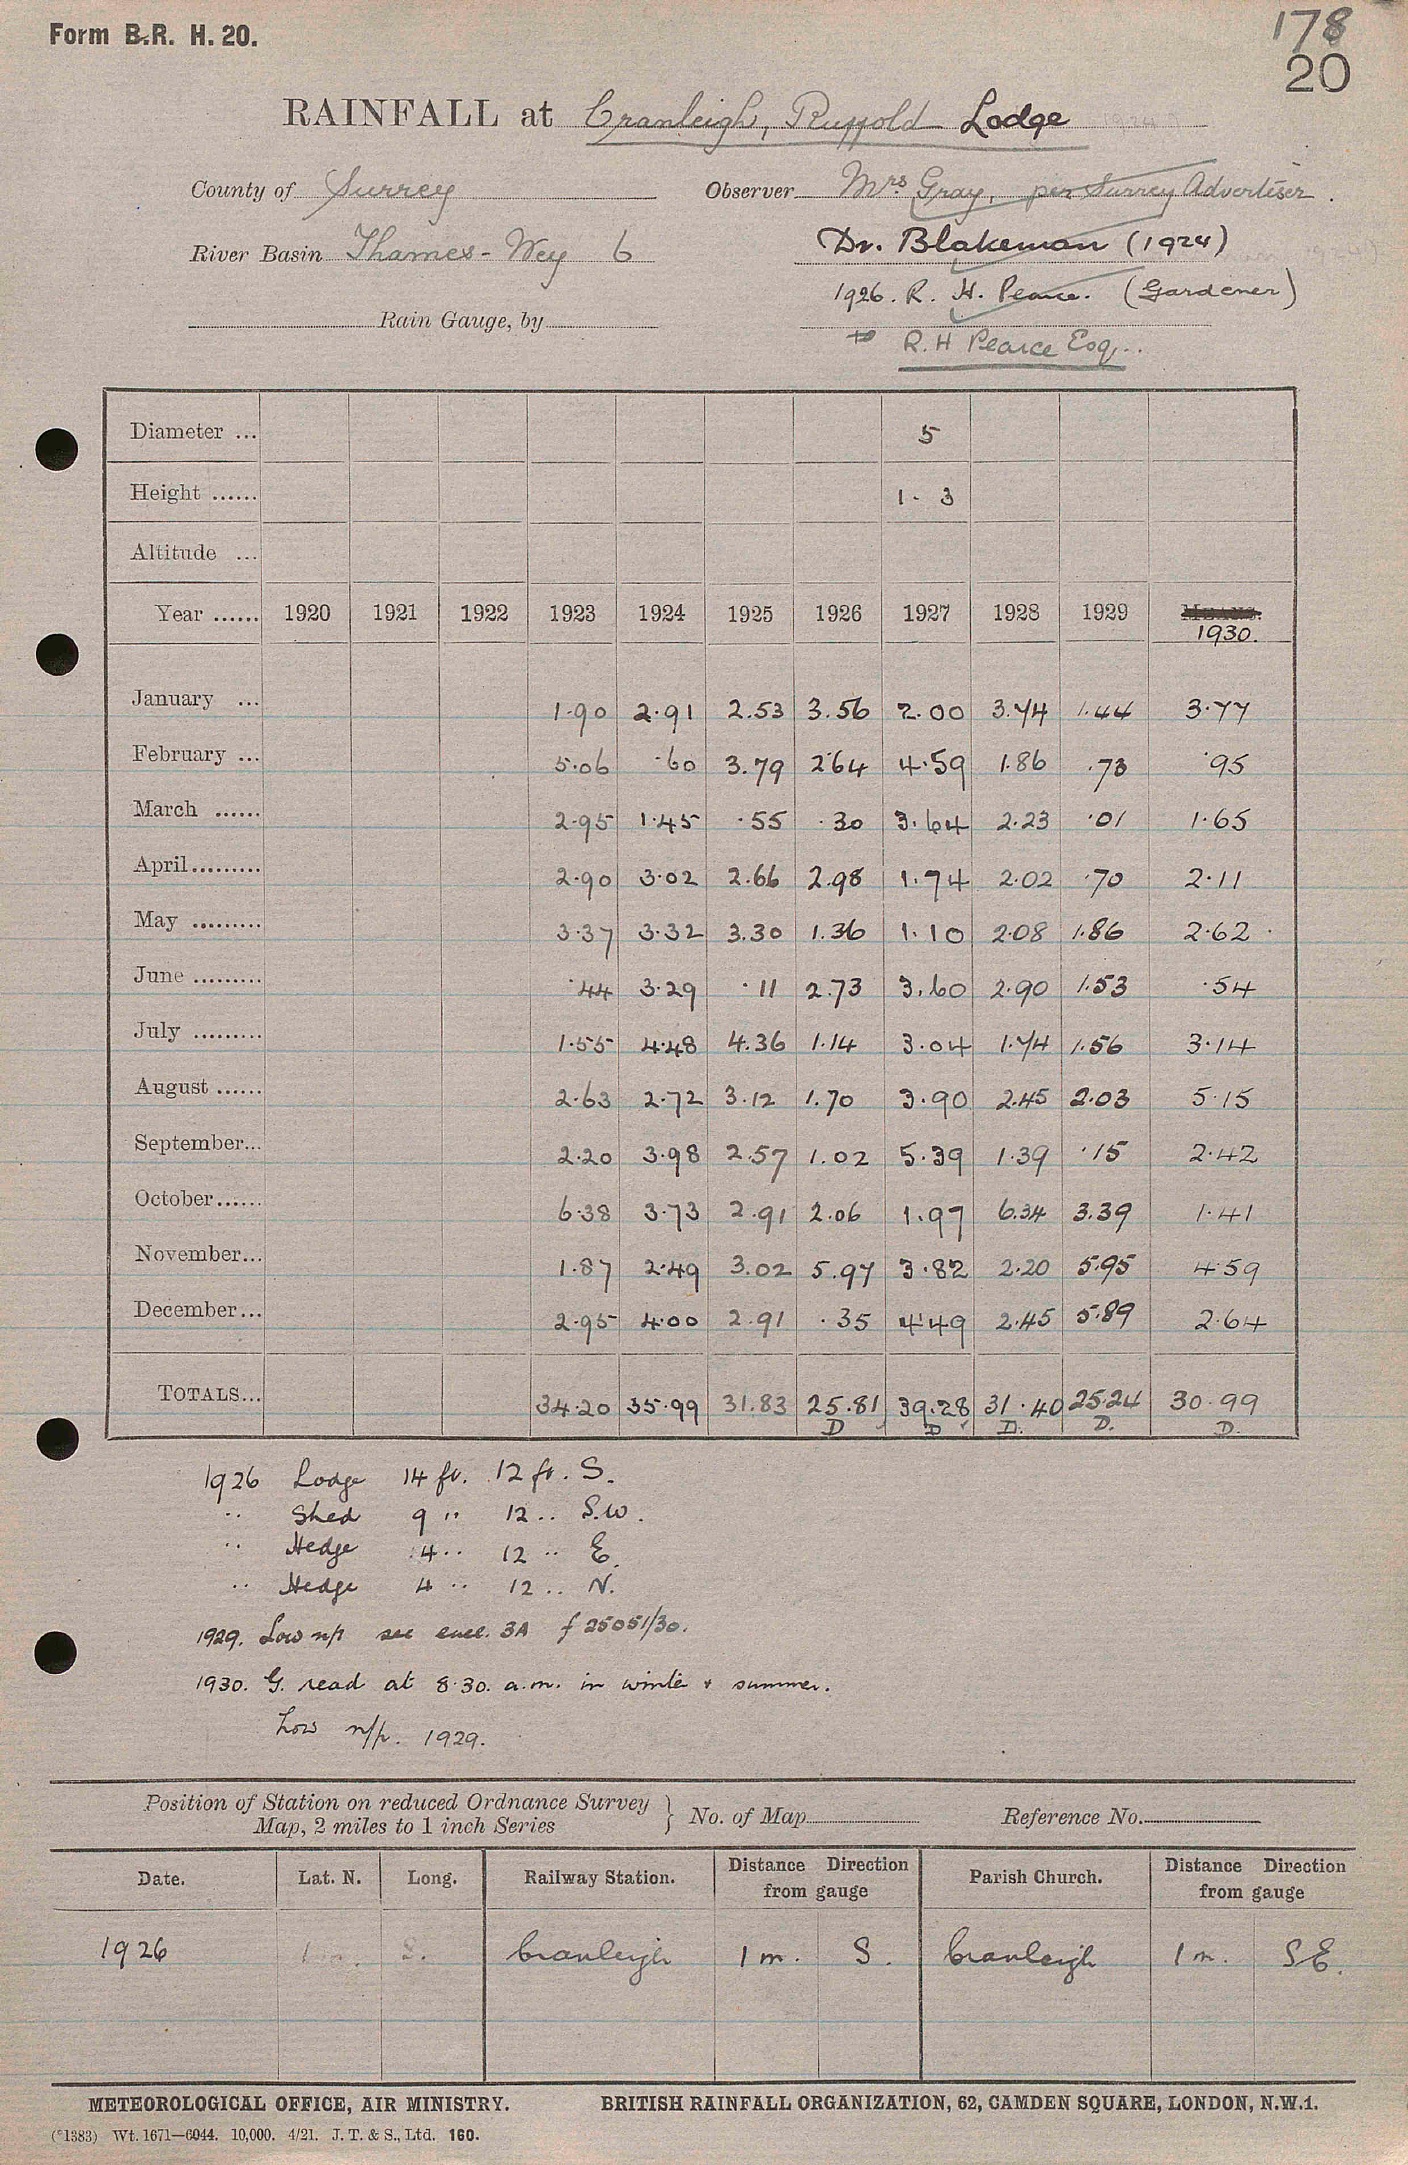 Form B.R. H. 20.
178
20
RAINFALL at Cranleigh, Lodge
County of Surrey Observer Mrs Gray, per Surrey Advertiser.
River Basin Thames - Wey 6 Dr. Blakeman (1924)
1926. R. H. Pearce. (Gardener)
Rain Gauge, by
R.H Pearce Esq..
Diameter ... 5
Height ...... 1 - 3
Altitude ...
Year ...... 1920 1921 1922 1923 1924 1925 1926 1927 1928 1929 MEANS.
1930.
January ... 1.90 2.91 2.53 3.56 2.00 3.74 1.44 3.77
February ... 5.06 .60 3.79 2.64 4.59 1.86 .73 .95
March ...... 2.95 1.45 .55 .30 3.64 2.23 .01 1.65
April......... 2.90 3.02 2.66 2.98 1.74 2.02 .70 2.11
May ......... 3.37 3.32 3.30 1.36 1.10 2.08 1.86 2.62
June ......... .44 3.29 .11 2.73 3.60 2.90 1.53 .54
July ......... 1.55 4.48 4.36 1.14 3.04 1.74 1.56 3.14
August ...... 2.63 2.72 3.12 1.70 3.90 2.45 2.03 5.15
September... 2.20 3.98 2.57 1.02 5.39 1.39 .15 2.42
October...... 6.38 3.73 2.91 2.06 1.97 6.34 3.39 1.41
November... 1.87 2.49 3.02 5.97 3.82 2.20 5.95 4.59
December... 2.95 4.00 2.91 .35 4.49 2.45 5.89 2.64
TOTALS... 34.20 35.99 31.83 25.81 39.28 31.40 25.24 30.99
D D D. D. D.
1926 Lodge 14 ft. 12 ft. S.
" Shed 9 " 12 " S.W.
" Hedge 4 " 12 " E.
" Hedge 4 " 12 " N.
1929. Low n/p see encl. 3A f 25051/30.
1930. G. read at 8.30. a.m. in winter & summer.
Low n/p. 1929.
Position of Station on reduced Ordnance Survey
Map, 2 miles to 1 inch Series } No. of Map Reference No.
Date. Lat. N. Long. Railway Station. Distance Direction from gauge Parish Church. Distance Direction from gauge
1926 Cranleigh 1 m. S. Cranleigh 1 m. SE.
METEOROLOGICAL OFFICE, AIR MINISTRY. BRITISH RAINFALL ORGANIZATION, 62, CAMDEN SQUARE, LONDON, N.W.1.
(*1383) Wt. 1671—6044. 10,000. 4/21. J. T. & S., Ltd. 160.